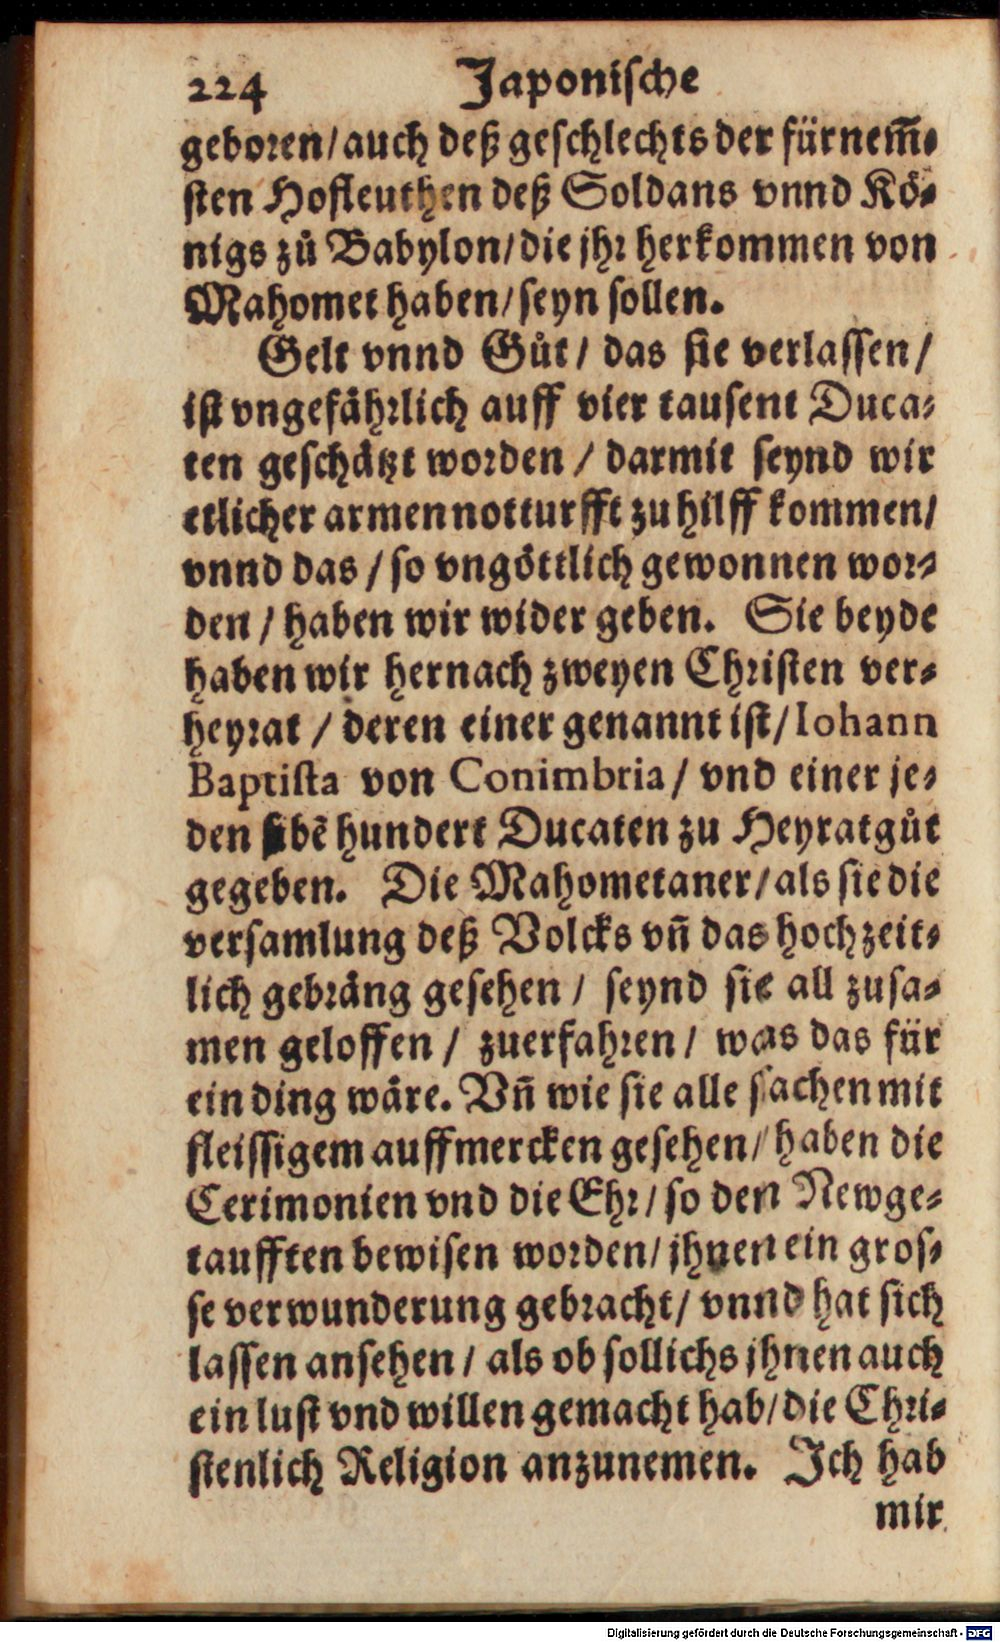 224 Japonische
geboren/ auch deß geschlechts der fürnem̃-
sten Hofleuthen deß Soldans vnnd Kö-
nigs zů Babylon/ die jhr herkommen von
Mahomet haben/ seyn sollen.
Gelt vnnd Gůt/ das sie verlassen/
ist vngefährlich auff vier tausent Duca-
ten geschätzt worden/ darmit seynd wir
etlicher armen notturfft zu hilff kommen/
vnnd das/ so vngöttlich gewonnen wor-
den/ haben wir wider geben. Sie beyde
haben wir hernach zweyen Christen ver-
heyrat/ deren einer genannt ist/ Iohann
Baptista von Conimbria/ vnd einer je-
den sibē hundert Ducaten zu Heyratgůt
gegeben. Die Mahometaner/ als sie die
versamlung deß Volcks vñ das hochzeit-
lich gebräng gesehen/ seynd sie all zusa-
men geloffen/ zuerfahren/ was das für
ein ding wäre. Vñ wie sie alle sachen mit
fleissigem auffmercken gesehen/ haben die
Cerimonien vnd die Ehr/ so den Newge-
taufften bewisen worden/ jhnen ein gros-
se verwunderung gebracht/ vnnd hat sich
lassen ansehen/ als ob sollichs jhnen auch
ein lust vnd willen gemacht hab/ die Chri-
stenlich Religion anzunemen. Ich hab
mir
Digitalisierung gefördert durch die Deutsche Forschungsgemeinschaft - DFG